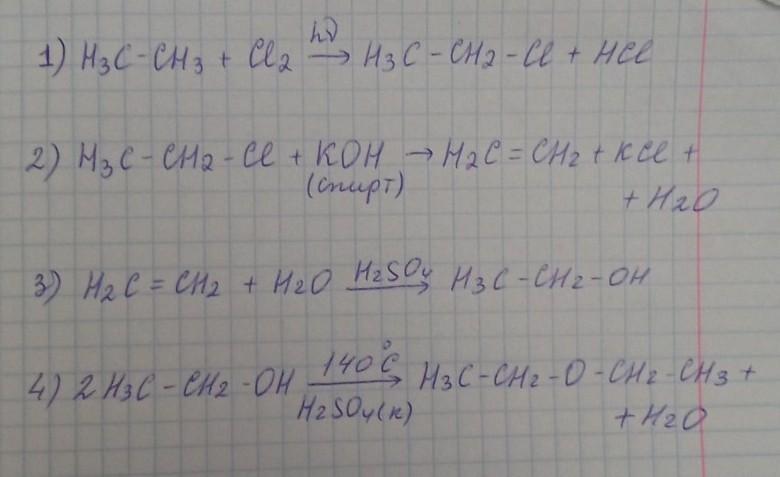 1) H3C-CH3 + Cl2 hν→ H3C-CH2-Cl + HCl
2) H3C-CH2-Cl + KOH → H2C=CH2 + KCl +
(спирт)
+ H2O
3) H2C=CH2 + H2O H2SO4→ H3C-CH2-OH
4) 2 H3C-CH2-OH 140°C→ H3C-CH2-O-CH2-CH3 +
H2SO4(к)
+ H2O